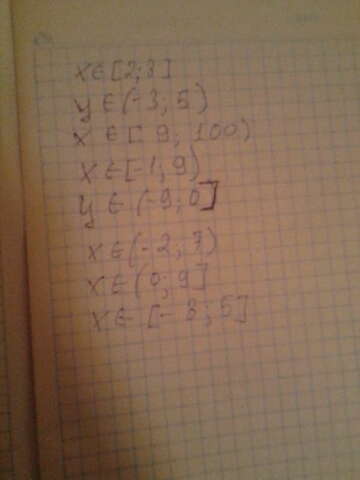 x∈[2;3]
y∈(-3;5)
x∈[9;100)
x∈[-1;9)
y∈(-9;0]
x∈(-2;7)
x∈(0;9]
x∈[-3;5]